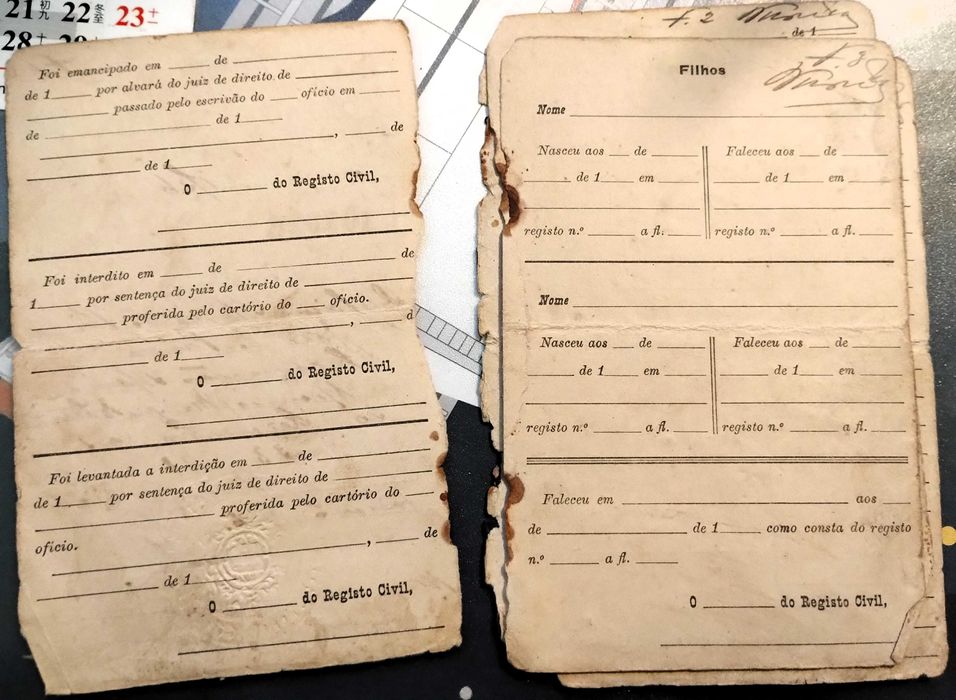 21 初九 22 冬至 23 十一
28 29
Foi emancipado em ______ de ______
de 1______ por alvará do juiz de direito de ______
______ passado pelo escrivão do ____ ofício em ____
de ______ de 1____
______, ____ de
______ de 1____
O ______ do Registo Civil,
Foi interdito em ______ de ______ de
1____ por sentença do juiz de direito de ______
______ proferida pelo cartório do ____ ofício.
______, ____ d
______ de 1____
O ______ do Registo Civil,
Foi levantada a interdição em ____ de ______
de 1____ por sentença do juiz de direito de ______
______ proferida pelo cartório do ____
ofício.
______, ____ de
______ de 1____
O ______ do Registo Civil,
f. 2
de 1
f. 3
Filhos
Nome ______
Nasceu aos ___ de ____
____ de 1____ em ____
registo n.º ____ a fl. ____
Faleceu aos ___ de ____
____ de 1____ em ____
registo n.º ____ a fl. ____
Nome ______
Nasceu aos ___ de ____
____ de 1____ em ____
registo n.º ____ a fl. ____
Faleceu aos ___ de ____
____ de 1____ em ____
registo n.º ____ a fl. ____
Faleceu em ______ aos
de ______ de 1____ como consta do registo
n.º ____ a fl. ____
O ______ do Registo Civil,